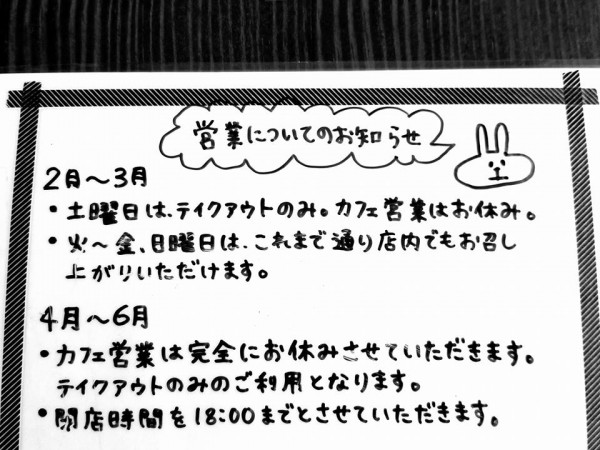 営業についてのお知らせ
2月〜3月
・土曜日は、テイクアウトのみ。カフェ営業はお休み。
・火〜金、日曜日は、これまで通り店内でもお召し
上がりいただけます。
4月〜6月
・カフェ営業は完全にお休みさせていただきます。
テイクアウトのみのご利用となります。
・閉店時間を18:00までとさせていただきます。